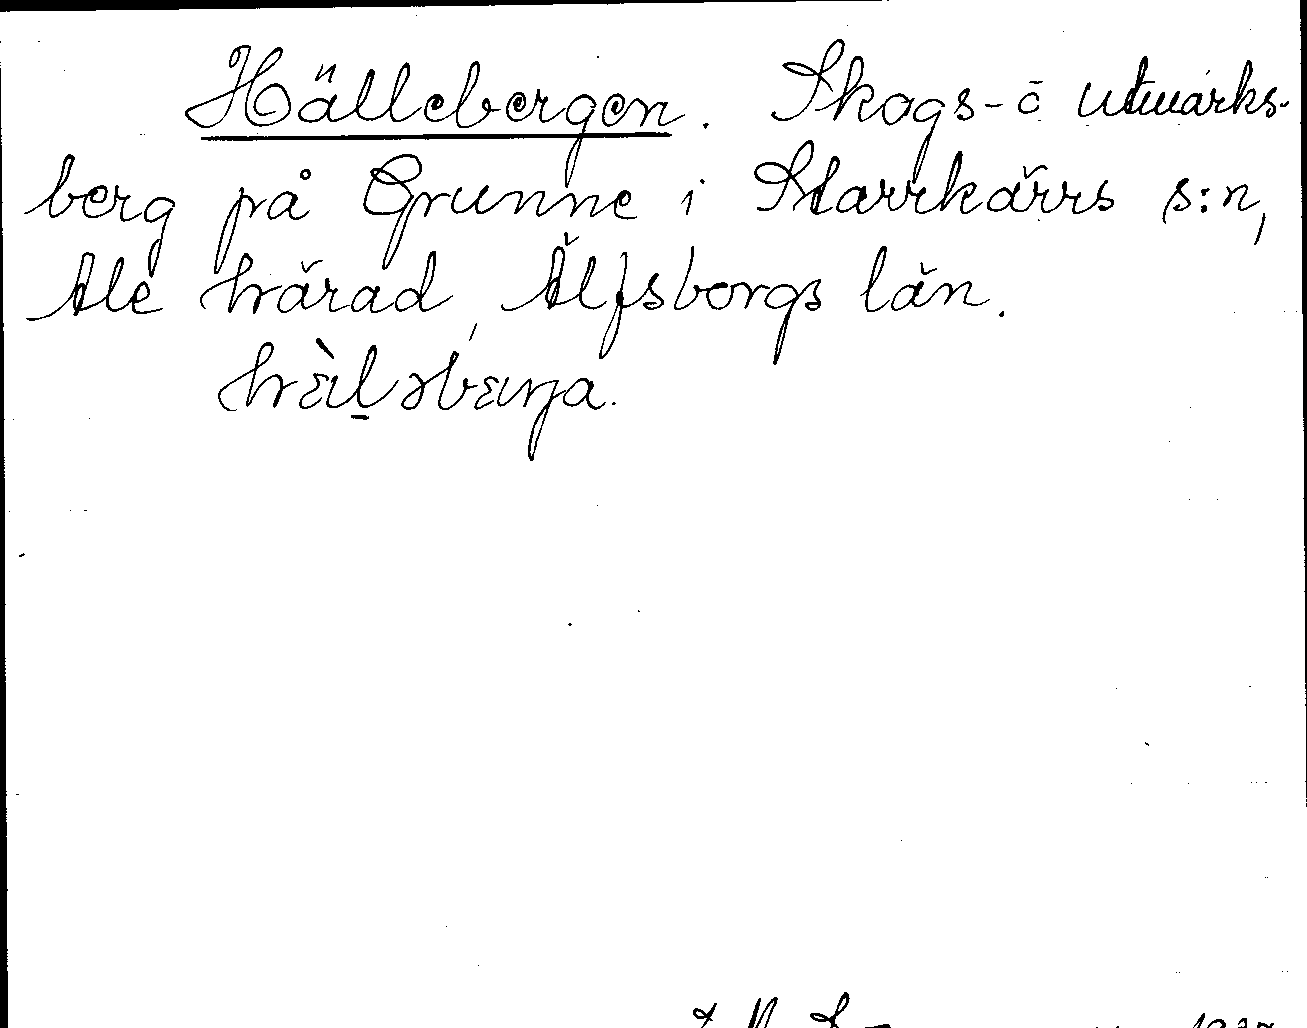 Hällebergen. Skogs- o utmarks-
berg på Grunne i Starrkärrs s:n,
Ale härad, Älfsborgs län.